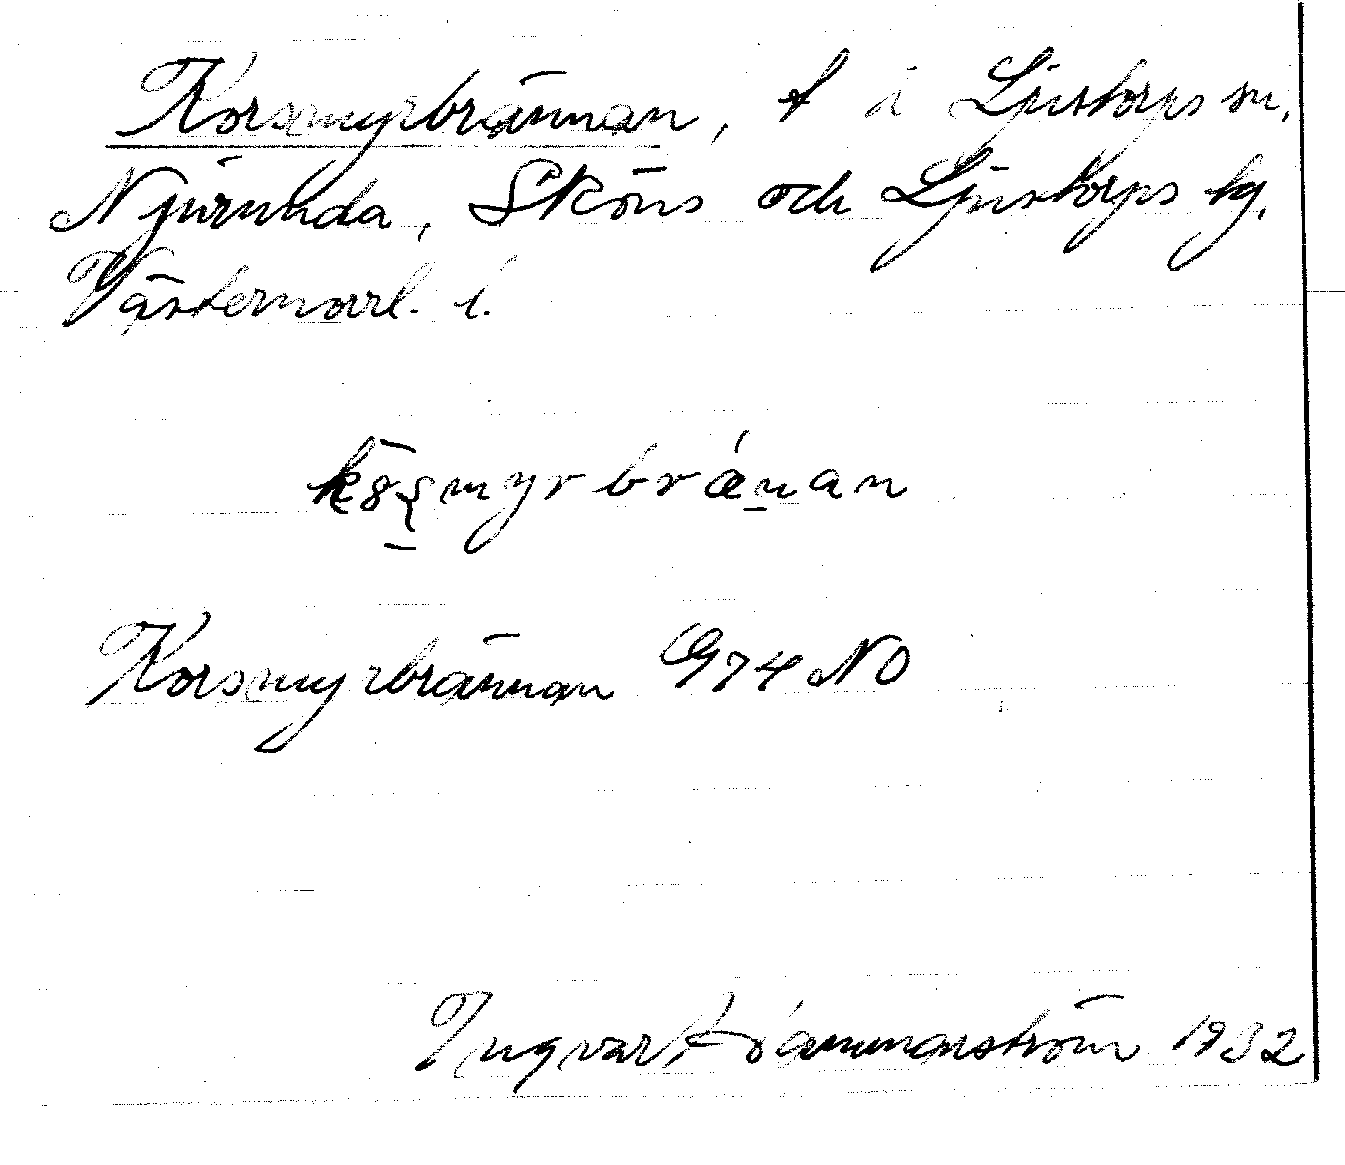 Korsmyrbrännan, t i Ljustorps sn.
Njurunda, Sköns och Ljustorps tg.
Västernorrl. l.
myrbrǽn̲an
Korsmyrbrännan G74 NO
Ingvar Hammarström 1932